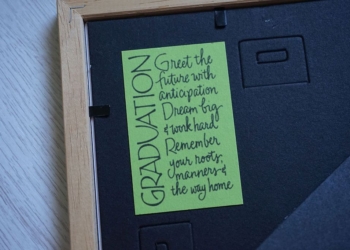 GRADUATION
Greet the
future with
anticipation
Dream big
& work hard
Remember
your roots,
manners &
the way home